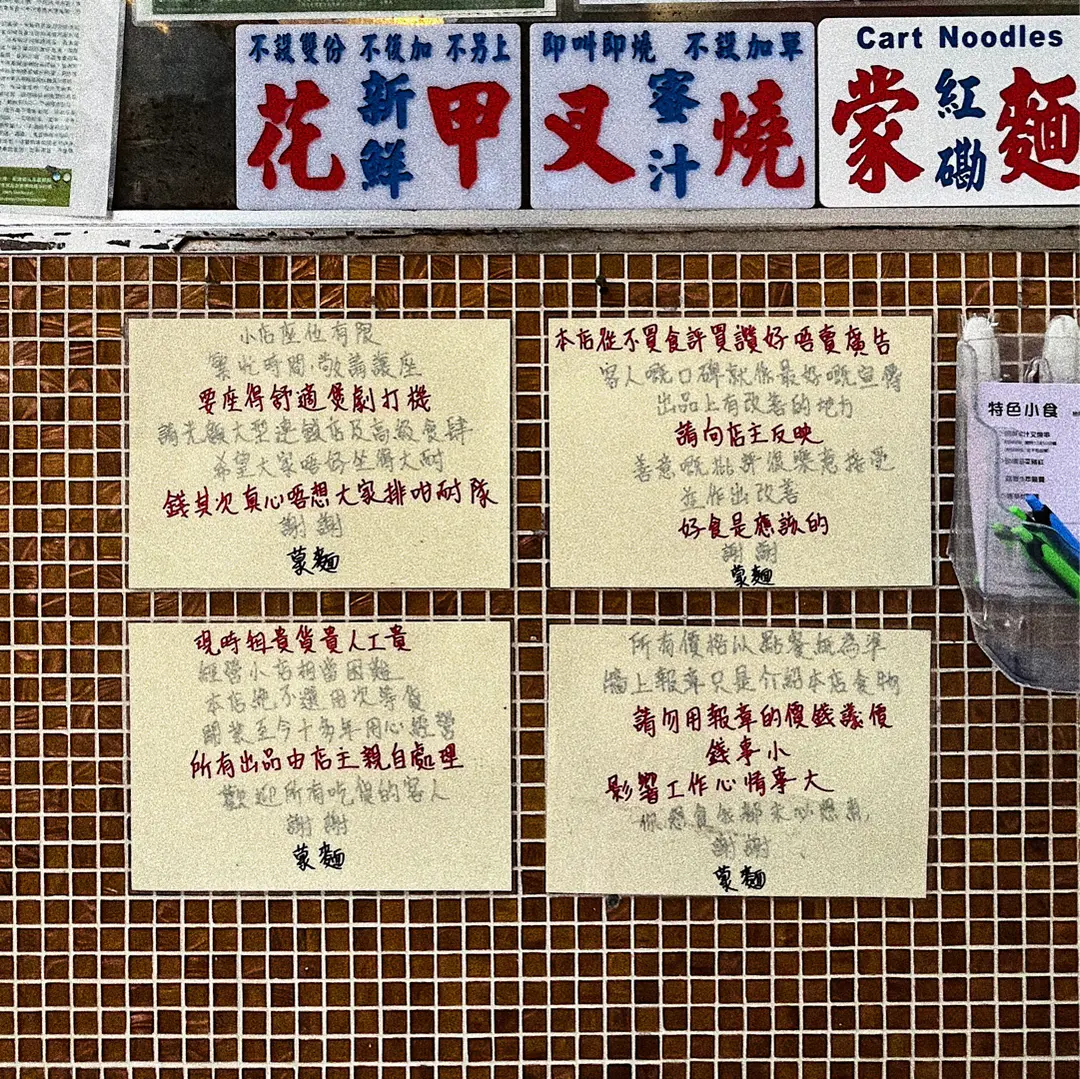 不設雙份 不後加 不另上
花新鮮甲
即叫即燒 不設加單
叉蜜汁燒
Cart Noodles
蒙紅磡麵
小店座位有限
繁忙時間,敬請讓座
要座得舒適煲劇打機
請先顧大型連鎖店及高級食肆
希望大家唔好坐得太耐
錢其次真心唔想大家排咁耐隊
謝謝
蒙麵
本店從不買食評買讚好唔賣廣告
客人嘅口碑就係最好嘅宣傳
出品上有改善的地方
請向店主反映
善意嘅批評很樂意接受
並作出改善
好食是應該的
謝謝
蒙麵
特色小食
現時租貴貨貴人工貴
經營小店相當困難
本店絕不選用次等貨
開業至今十多年用心經營
所有出品由店主親自處理
歡迎所有吃貨的客人
謝謝
蒙麵
所有價格以點餐紙為準
牆上報章只是介紹本店食物
請勿用報章的價錢議價
錢事小
影響工作心情事大
謝謝
蒙麵